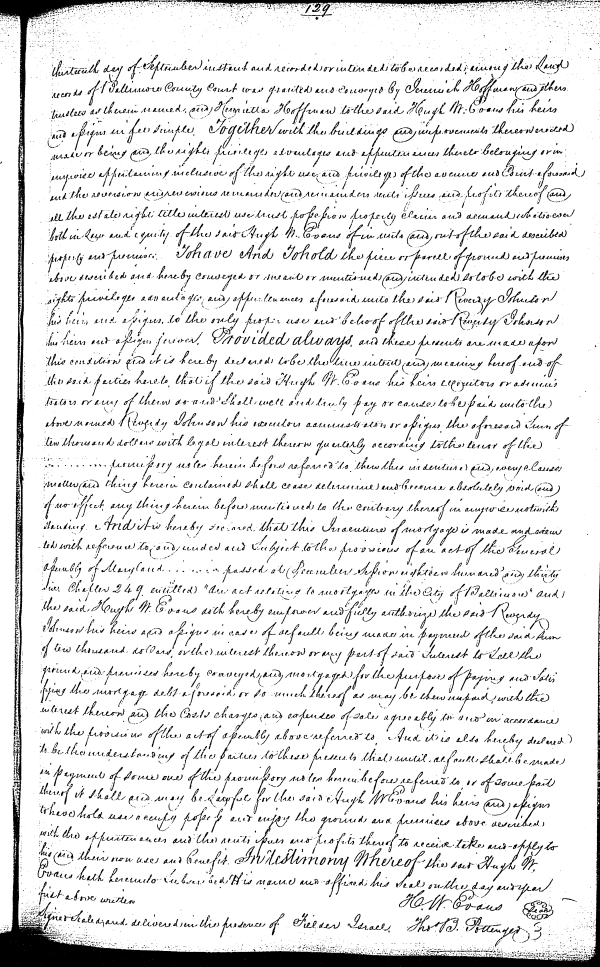 129
thirteenth day of September instant and recorded or intended to be recorded among the Land
records of Baltimore County Court was granted and conveyed by Jeremiah Hoffman and others
trustees as therein named, and Henrietta Hoffman to the said Hugh W. Evans his heirs
and assigns in fee simple. Together with the buildings and improvements thereon erected
made or being and the rights privileges advantages and appurtenances thereto belonging or in
anywise appertaining inclusive of the right use and privilege of the avenue and Court aforesaid
and the reversion and reversions remainder and remainders rents issues and profits thereof and
all the estate right title interest use trust possession property claim and demand whatsoever
both in Law and equity of the said Hugh W. Evans of in unto and out of the said described
property and premises. To have And To hold the piece or parcel of ground and premises
above described and hereby conveyed or meant or mentioned and intended so to be with the
rights privileges advantages and appurtenances aforesaid unto the said Reverdy Johnson
his heirs and assigns, to the only proper use and behoof of the said Reverdy Johnson
his heirs and assigns forever. Provided always, and these presents are made upon
this condition and it is hereby declared to be the true intent and meaning hereof and of
the said parties hereto, that if the said Hugh W. Evans his heirs executors or adminis
trators or any of them do and shall well and truly pay or cause to be paid unto the
above named Reverdy Johnson his executors administrators or assigns, the aforesaid Sum of
ten thousand dollars with legal interest thereon quarterly according to the tenor of the
promissory notes herein before referred to, then this indenture and every Clause
matter and thing herein contained shall cease determine and become absolutely void and
of no effect, any thing herein before mentioned to the contrary thereof in anywise notwith
standing. And it is hereby declared, that this Indenture of mortgage is made and execu
ted with reference to, and under and Subject to the provisions of an act of the General
assembly of Maryland passed at December Session eighteen hundred and thirty
six Chapter 249. entitled "An act relating to mortgages in the City of Baltimore" and
the said Hugh W. Evans doth hereby empower and fully authorize the said Reverdy
Johnson his heirs and assigns in case of default being made in payment of the said Sum
of ten thousand dollars, or the interest thereon or any part of said Interest to Sell the
ground and premises hereby conveyed and mortgaged for the purpose of paying and Satis
fying the mortgage debt aforesaid or so much thereof as may be then unpaid, with the
interest thereon and the Costs charges and expenses of sale agreeably to and in accordance
with the provisions of the act of assembly above referred to. And it is also hereby declared
to be the understanding of the parties to these presents that until default shall be made
in payment of some one of the promissory notes herein before referred to, or of some part
thereof it shall and may be Lawful for the said Hugh W Evans his heirs and assigns
to have hold use occupy possess and enjoy the ground and premises above described
with the appurtenances and the rents issues and profits thereof to receive take and apply to
his and their own use and benefit. In testimony Whereof the said Hugh W.
Evans hath hereunto Subscribed His name and affixed his Seal on the day and year
first above written H. W. Evans Seal
Signed Sealed and delivered in the presence of Fielder Israel, Thos. B. Pottenger